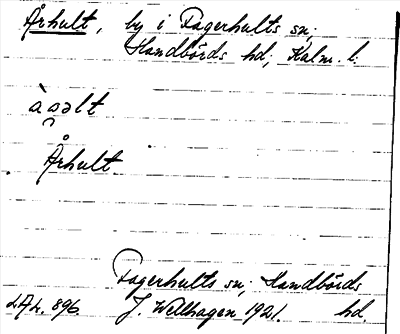 Århult, by i Fagerhults sn;
Handbörds hd; Kalm. l.
Århult
Fagerhults sn; Handbörds
J. Wellhagen 1921. hd.